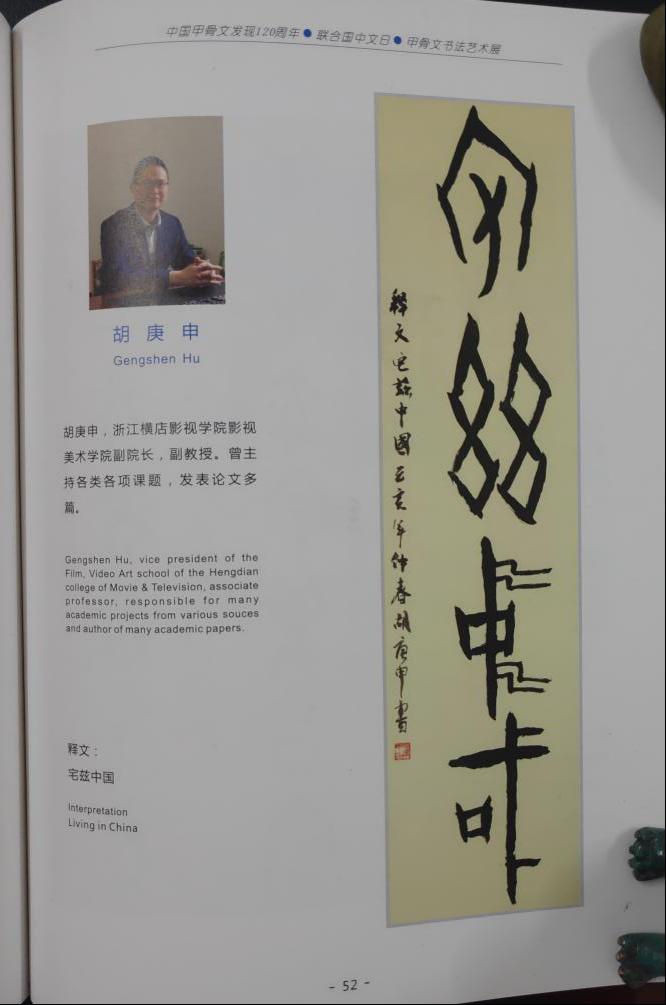 中国甲骨文发现120周年●联合国中文日●甲骨文书法艺术展
胡庚申
Gengshen Hu
胡庚申，浙江横店影视学院影视
美术学院副院长，副教授。曾主
持各类各项课题，发表论文多
篇。
Gengshen Hu, vice president of the
Film, Video Art school of the Hengdian
college of Movie & Television, associate
professor, responsible for many
academic projects from various souces
and author of many academic papers.
释文：
宅兹中国
Interpretation
Living in China
宅兹中国
释文宅兹中國己亥年仲春胡庚申書
- 52 -